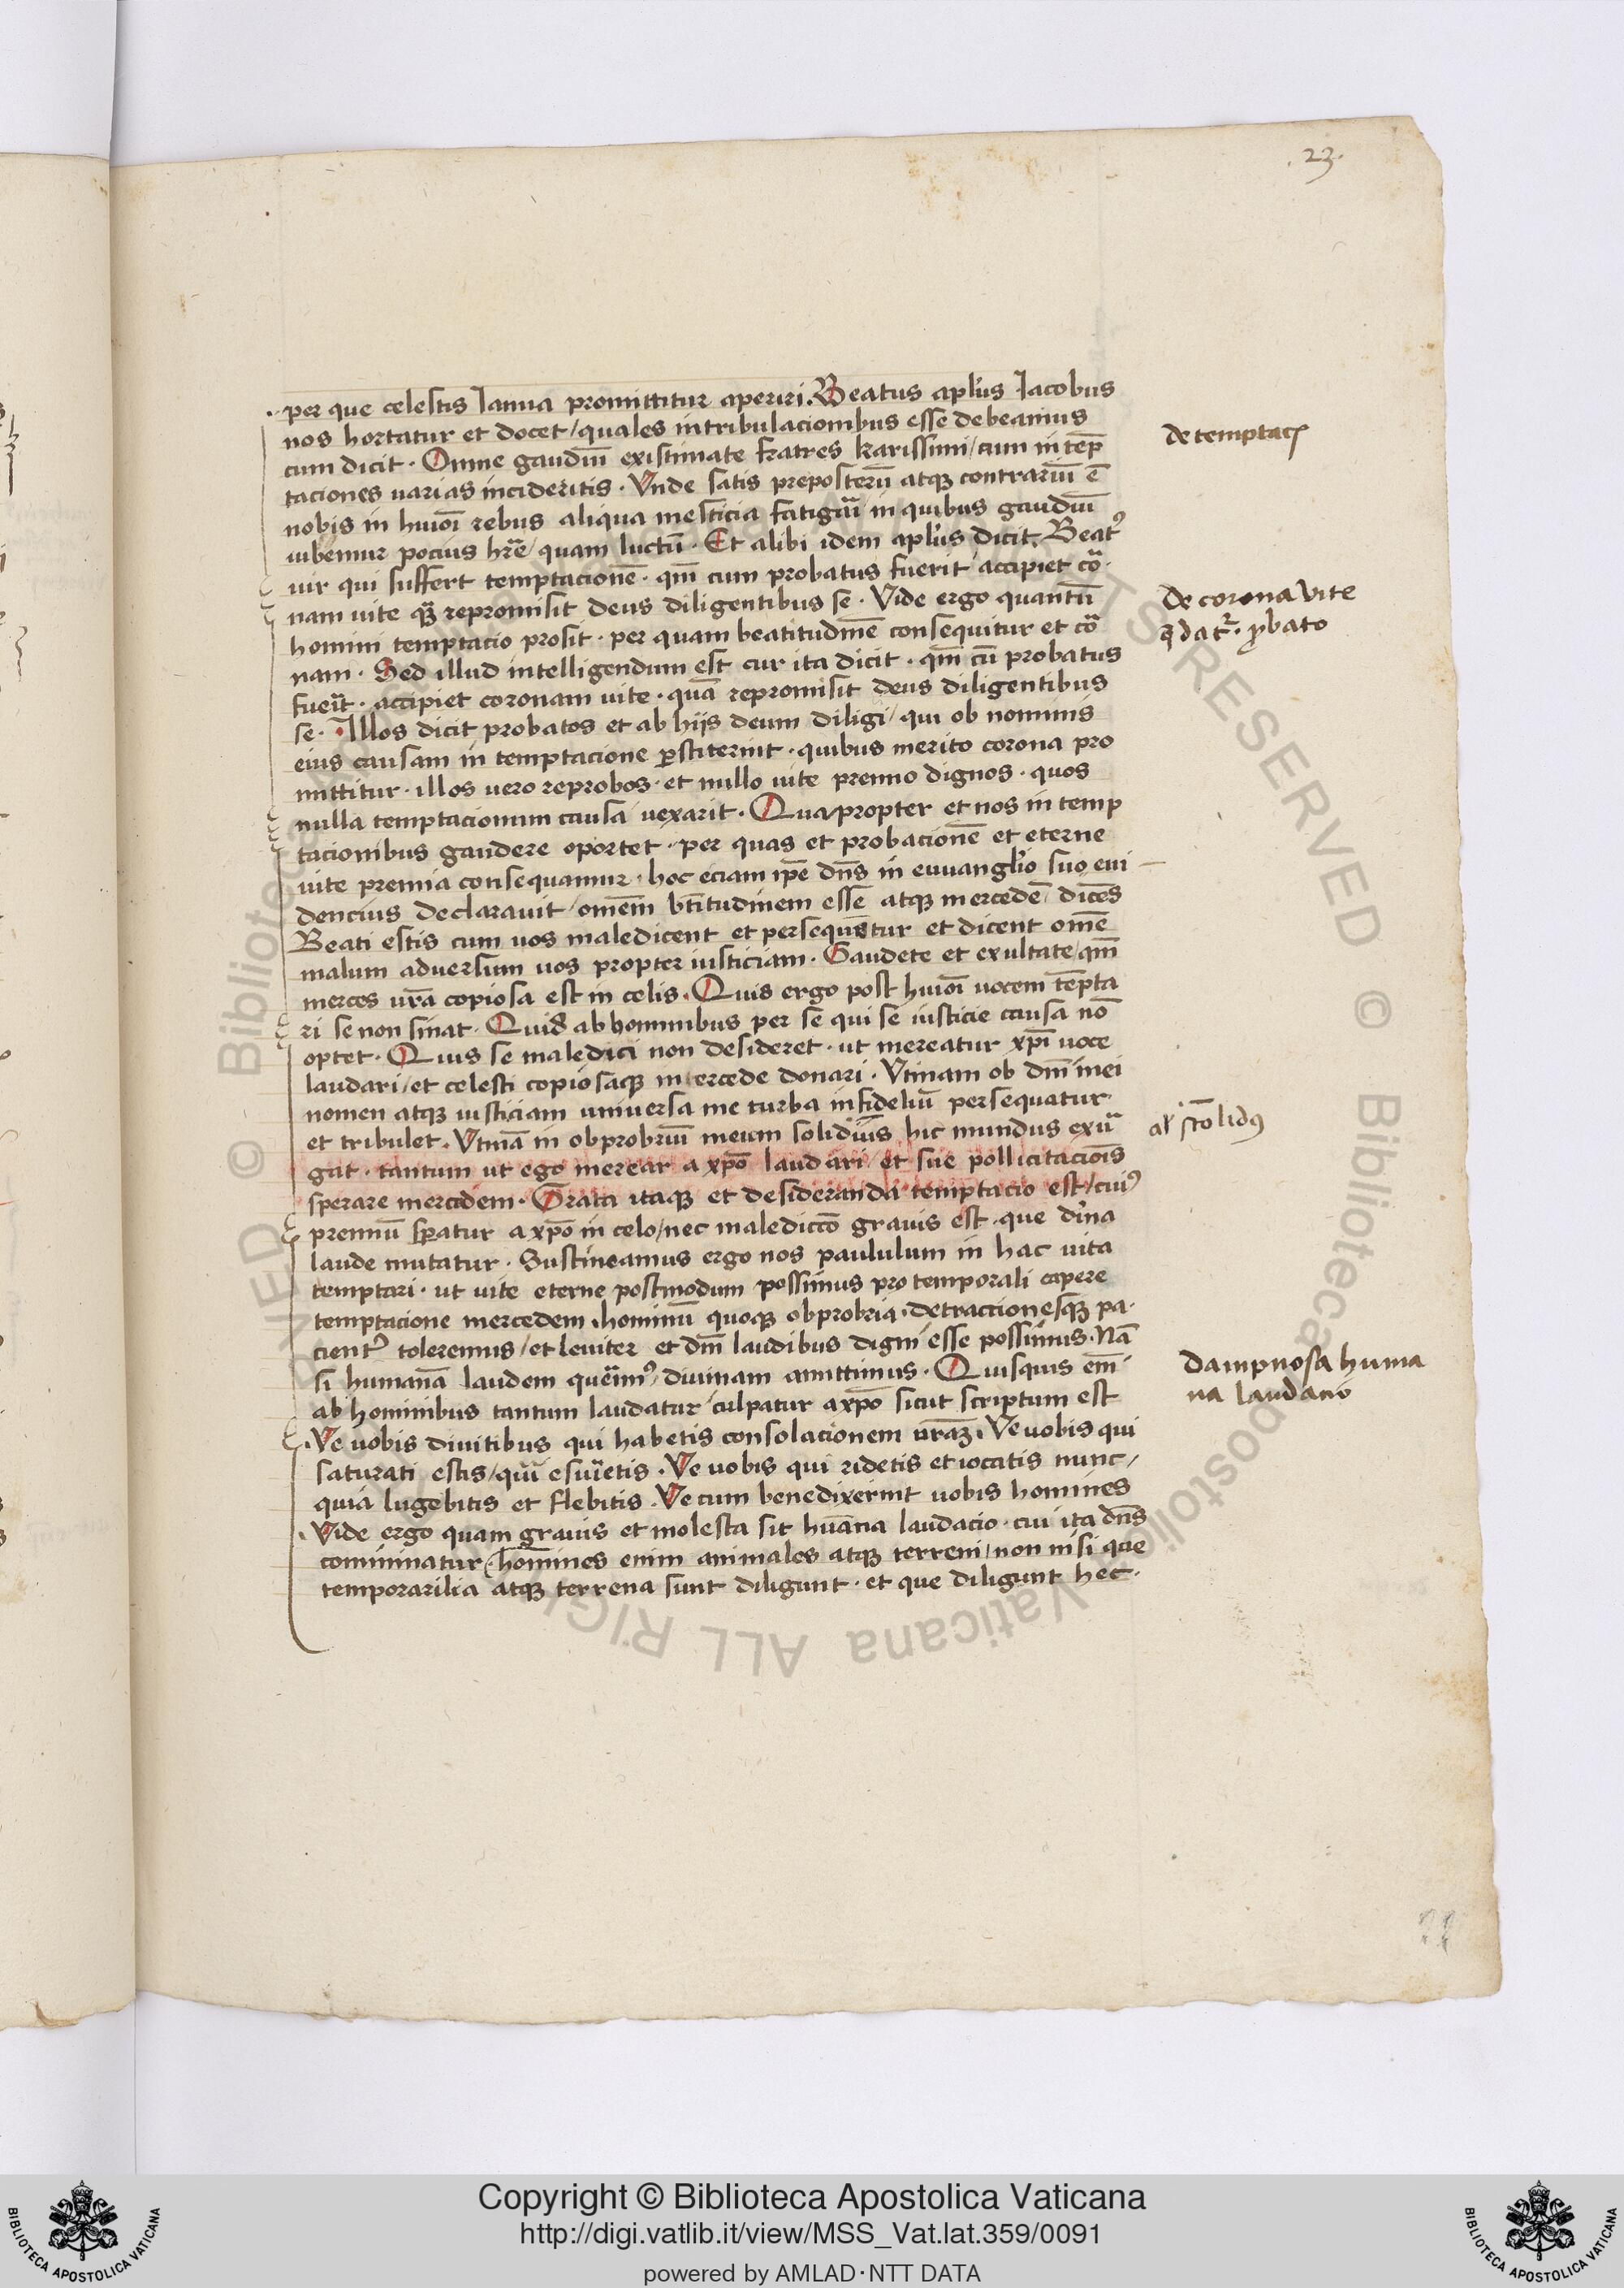 23.
per que celestis Ianua promittitur aperiri. Beatus aplus Iacobus
nos hortatur et docet / quales in tribulacionibus esse debeamus
cum dicit. Omne gaudiū existimate fratres karissimi / cum in tēp
taciones uarias incideritis. Vnde satis preposterū atqꝫ contrariū ē
nobis in huiōi rebus aliqua mesticia fatigari in quibus gaudiū
iubemur pocius hr̄e / quam luctū. Et alibi idem aplus dicit. Beatꝰ
uir qui suffert temptacionē. qm̄ cum probatus fuerit accipiet co
nam uite qā repromisit deus diligentibus se. Vide ergo quantū
homini temptacio prosit. per quam beatitudinē consequitur et co
nam. Sed illud intelligendum est cur ita dicit. qm̄ cū probatus
fuerit. accipiet coronam uite. quā repromisit deus diligentibus
se. Illos dicit probatos et ab hijs deum diligi / qui ob nominis
eius causam in temptacione ꝑstiterint. quibus merito corona pro
mittitur. illos uero reprobos. et nullo uite premio dignos. quos
nulla temptacionum causa uexarit. Quapropter et nos in temp
tacionibus gaudere oportet. per quas et probacionē et eterne
uite premia consequamur. hoc eciam ip̄e dn̄s in euuanglio suo eui
dencius declarauit / omēm bt̄itudinem esse atqꝫ mercedē dicēs
Beati estis cum uos maledicent et persequentur et dicent omē
malum aduersum uos propter iusticiam. Gaudete et exultate / qm̄
merces ur̄a copiosa est in celis. Quis ergo post huiōi uocem tēpta
ri se non sinat. Quid ab hominibus per se qui se iusticie causa nō
optet. Quis se maledici non desideret. ut mereatur xp̄i uoce
laudari / et celesti copiosaqꝫ mercede donari. Vtinam ob dn̄i mei
nomen atqꝫ iusticiam uniuersa me turba infideliū persequatur
et tribulet. Vtinā in obprobriū meum solidius hic mundus exur
gat. tantum ut ego merear a xp̄o laudari / et sue pollicitacionis
sperare mercedem. Grata itaqꝫ et desideranda temptacio est / cuiꝰ
premiū speratur a xp̄o in celo / nec malediccō grauis est. que diuina
laude mutatur. Sustineamus ergo nos paululum in hac uita
temptari. ut uite eterne postmodum possimus pro temporali capere
temptacione mercedem. hominū quoqꝫ obprobria. detraccionesqꝫ pa
cienter toleremus / et leuiter et dn̄i laudibus digni esse possimus. Nā
si humanā laudem querimꝰ / diuinam amittimus. Quisquis em̄
ab hominibus tantum laudatur culpatur a xp̄o sicut scriptum est
Ve uobis diuitibus qui habetis consolacionem ur̄aꝫ. Ve uobis qui
saturati estis / qui esurietis. Ve uobis qui ridetis et iocatis nunc /
quia lugebitis et flebitis. Ve cum benedixerint uobis homines
Vide ergo quam grauis et molesta sit huāna laudacio. cui ita dn̄s
cominatur. homines enim animales atqꝫ terreni / non nisi que
temporarilia atqꝫ terrena sunt diligunt. et que diligunt hec.
de temptac̄
De corona vite
q̄ datur. ꝓbato
al stolidꝰ
dampnosa huma
na laudacio
© Biblioteca Apostolica Vaticana ALL RIGHTS RESERVED
BIBLIOTECA APOSTOLICA VATICANA
Copyright © Biblioteca Apostolica Vaticana
http://digi.vatlib.it/view/MSS_Vat.lat.359/0091
powered by AMLAD·NTT DATA
BIBLIOTECA APOSTOLICA VATICANA